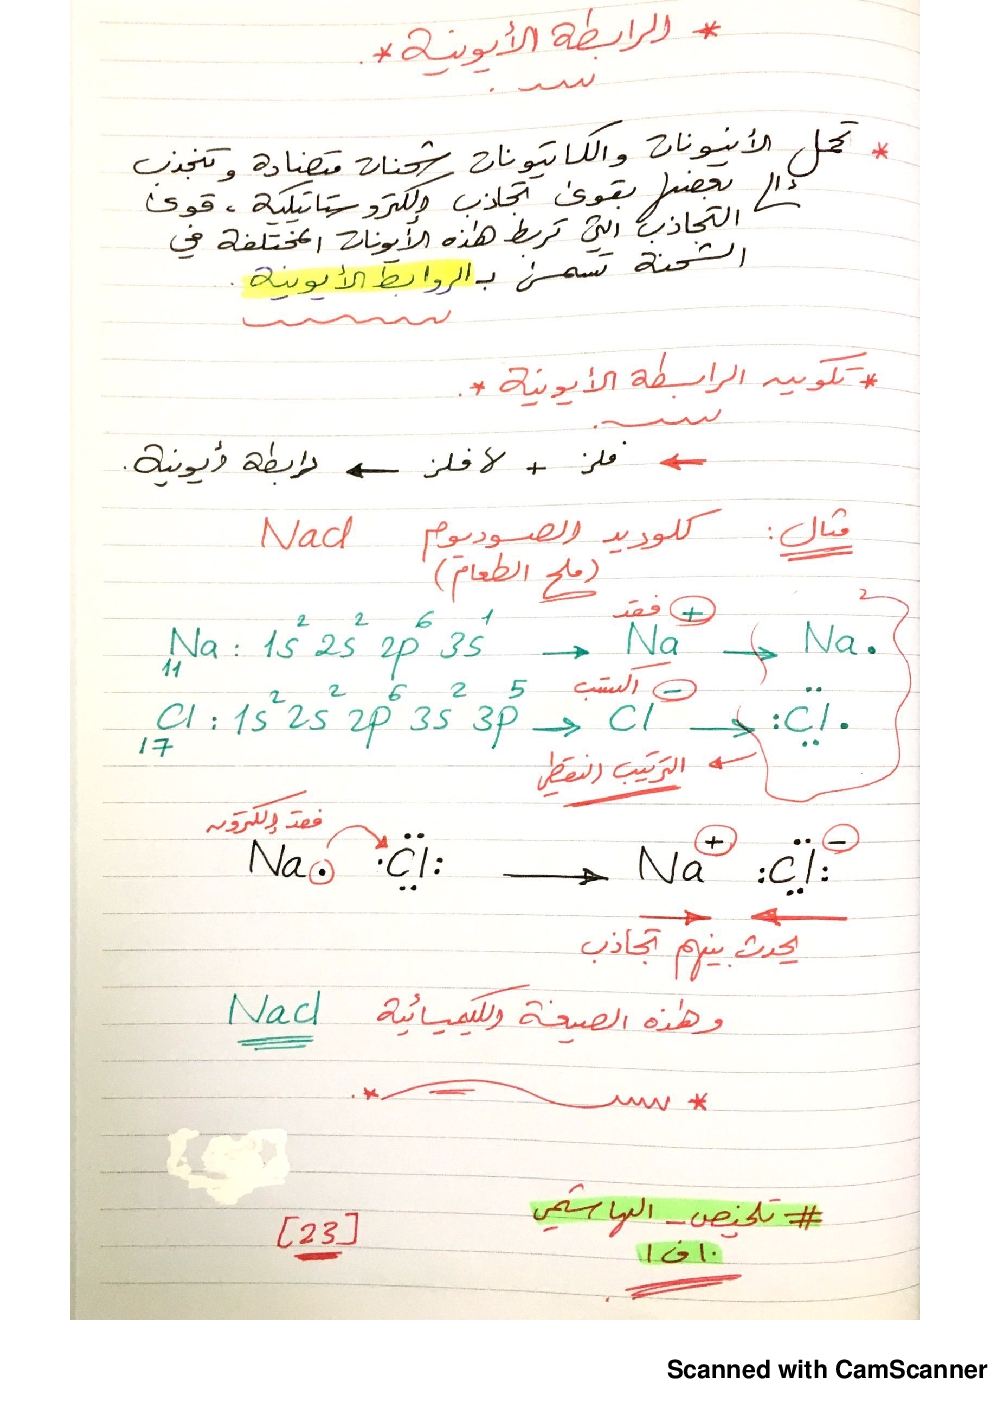 * الرابطة الأيونية *.
* تحمل الأنيونات والكاتيونات شحنات متضادة وتنجذب
إلى بعضها بقوى تجاذب إلكتروستاتيكية ، قوى
التجاذب التي تربط هذه الأيونات المختلفة في
الشحنة تسمى بـ الروابط الأيونية .
* تكوين الرابطة الأيونية *.
← فلز + لافلز ← رابطة أيونية.
مثال : كلوريد الصوديوم Nacl
(ملح الطعام)
فقد +
Na : 1s² 2s² 2p⁶ 3s¹ → Na → Na.
11
اكتسب −
Cl : 1s² 2s² 2p⁶ 3s² 3p⁵ → Cl → :Cl.
17
الترتيب النقطي
فقد إلكترون
Na. .Cl: → Na+ :Cl:−
يحدث بينهم تجاذب
وهذه الصيغة الكيميائية Nacl
# تلخيص_الهاشمي
١٠ف١
[23]
Scanned with CamScanner